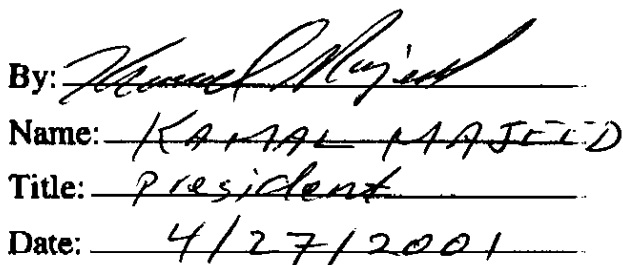 By: Kamal Majeed
Name: KAMAL MAJEED
Title: President
Date: 4/27/2001